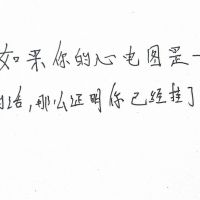 如果你的心电图是一
的话,那么证明你已经挂了